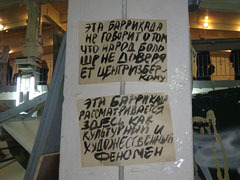 ЭТА БАРРИКАДА
НЕ ГОВОРИТ О ТОМ
ЧТО НАРОД БОЛЬ
ШЕ НЕ ДОВЕРЯ
ЕТ ЦЕНТРИЗБЕР-
КОМУ
ЭТА БАРРИКАДА
РАСМАТРИВАЕТСЯ
ЗДЕСЬ КАК
КУЛЬТУРНЫЙ И
ХУДОЖЕСТВЕННЫЙ
ФЕНОМЕН